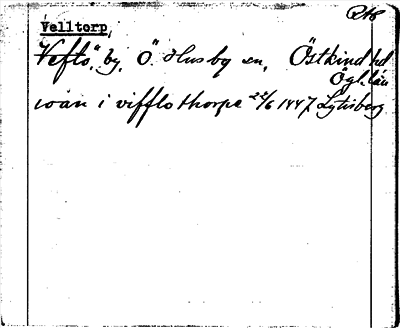 Velltorp,
Veflö, by, Ö. Husby sn, Östkind hd
Ögl. län
ioan i vifflothorpe 22/6 1447 Lytisberg